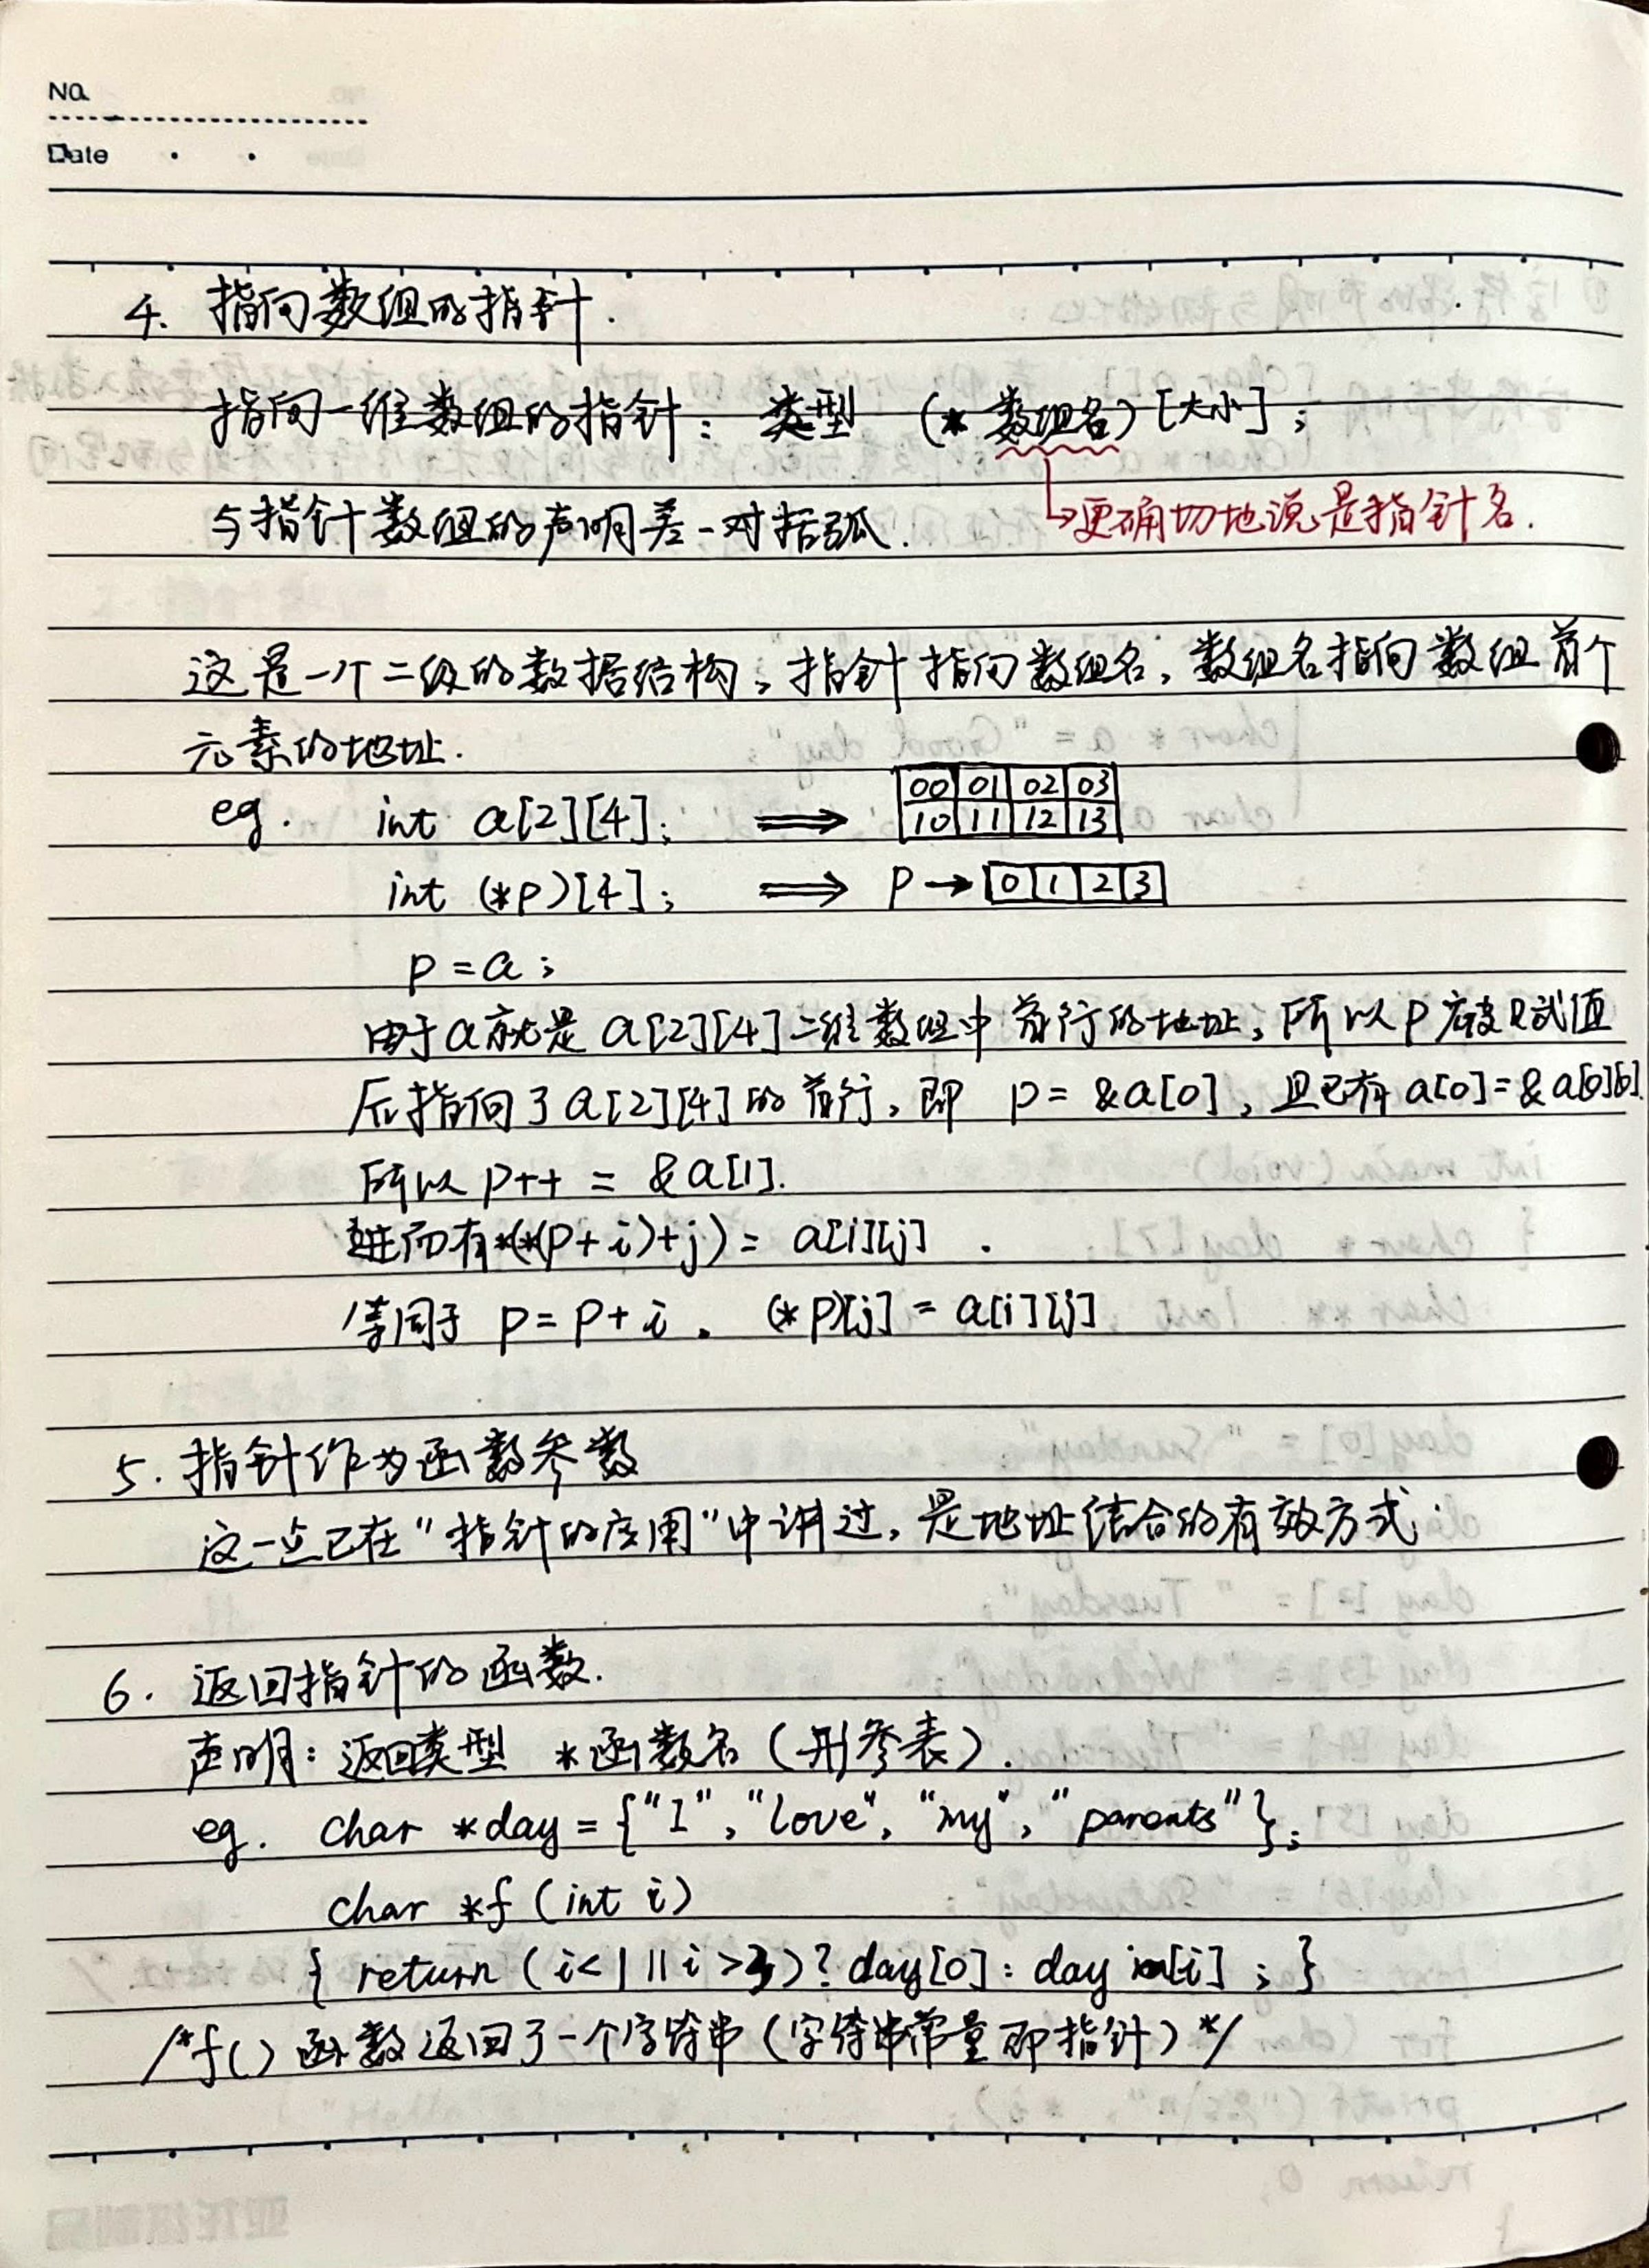 No.
Date
4. 指向数组的指针.
指向一维数组的指针: 类型 (* 数组名) [大小];
与指针数组的声明差一对括弧.
↳更确切地说是指针名.
这是一个二级的数据结构, 指针指向数组名, 数组名指向数组首个
元素的地址.
eg. int a[2][4]; ⟹ 00 01 02 03
10 11 12 13
int (*p)[4]; ⟹ P → 0 1 2 3
p = a;
由于a就是a[2][4]二维数组中首行的地址, 所以P被赋值
后指向了a[2][4]的首行, 即 p = &a[0], 且已有 a[0] = &a[0][0].
所以 p++ = &a[1].
进而有*(*(p+i)+j) = a[i][j] .
等同于 p = p + i . (*p)[j] = a[i][j]
5. 指针作为函数参数
这一点已在"指针的应用"中讲过, 是地址结合的有效方式.
6. 返回指针的函数.
声明: 返回类型 *函数名 (形参表).
eg. char *day = {"I", "love", "my", "parents"};
char *f (int i)
{ return (i<1 || i>3)? day[0] : day [i] ; }
/*f() 函数返回了一个字符串 (字符串常量即指针) */